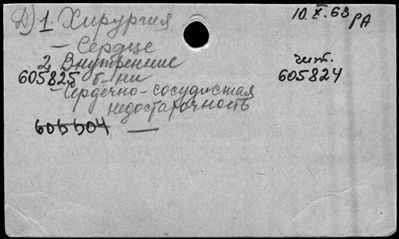 Д) 1. Хирургия
10.X.63 РА
– Сердце
2. Внутренние
605825 б-ни
чит.
605824
– Сердечно-сосудистая
недостаточность
605504 —